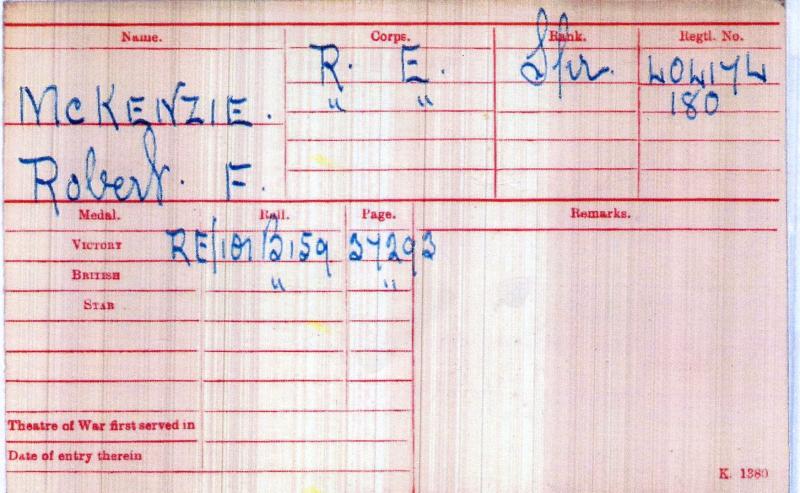 Name. Corps. Rank. Regtl. No.
McKENZIE. R. E. Spr. 404174
" " 180
Robert. F.
Medal. Roll. Page. Remarks.
VICTORY RE/101 B159 37293
BRITISH " "
STAR
Theatre of War first served in
Date of entry therein
K. 1380